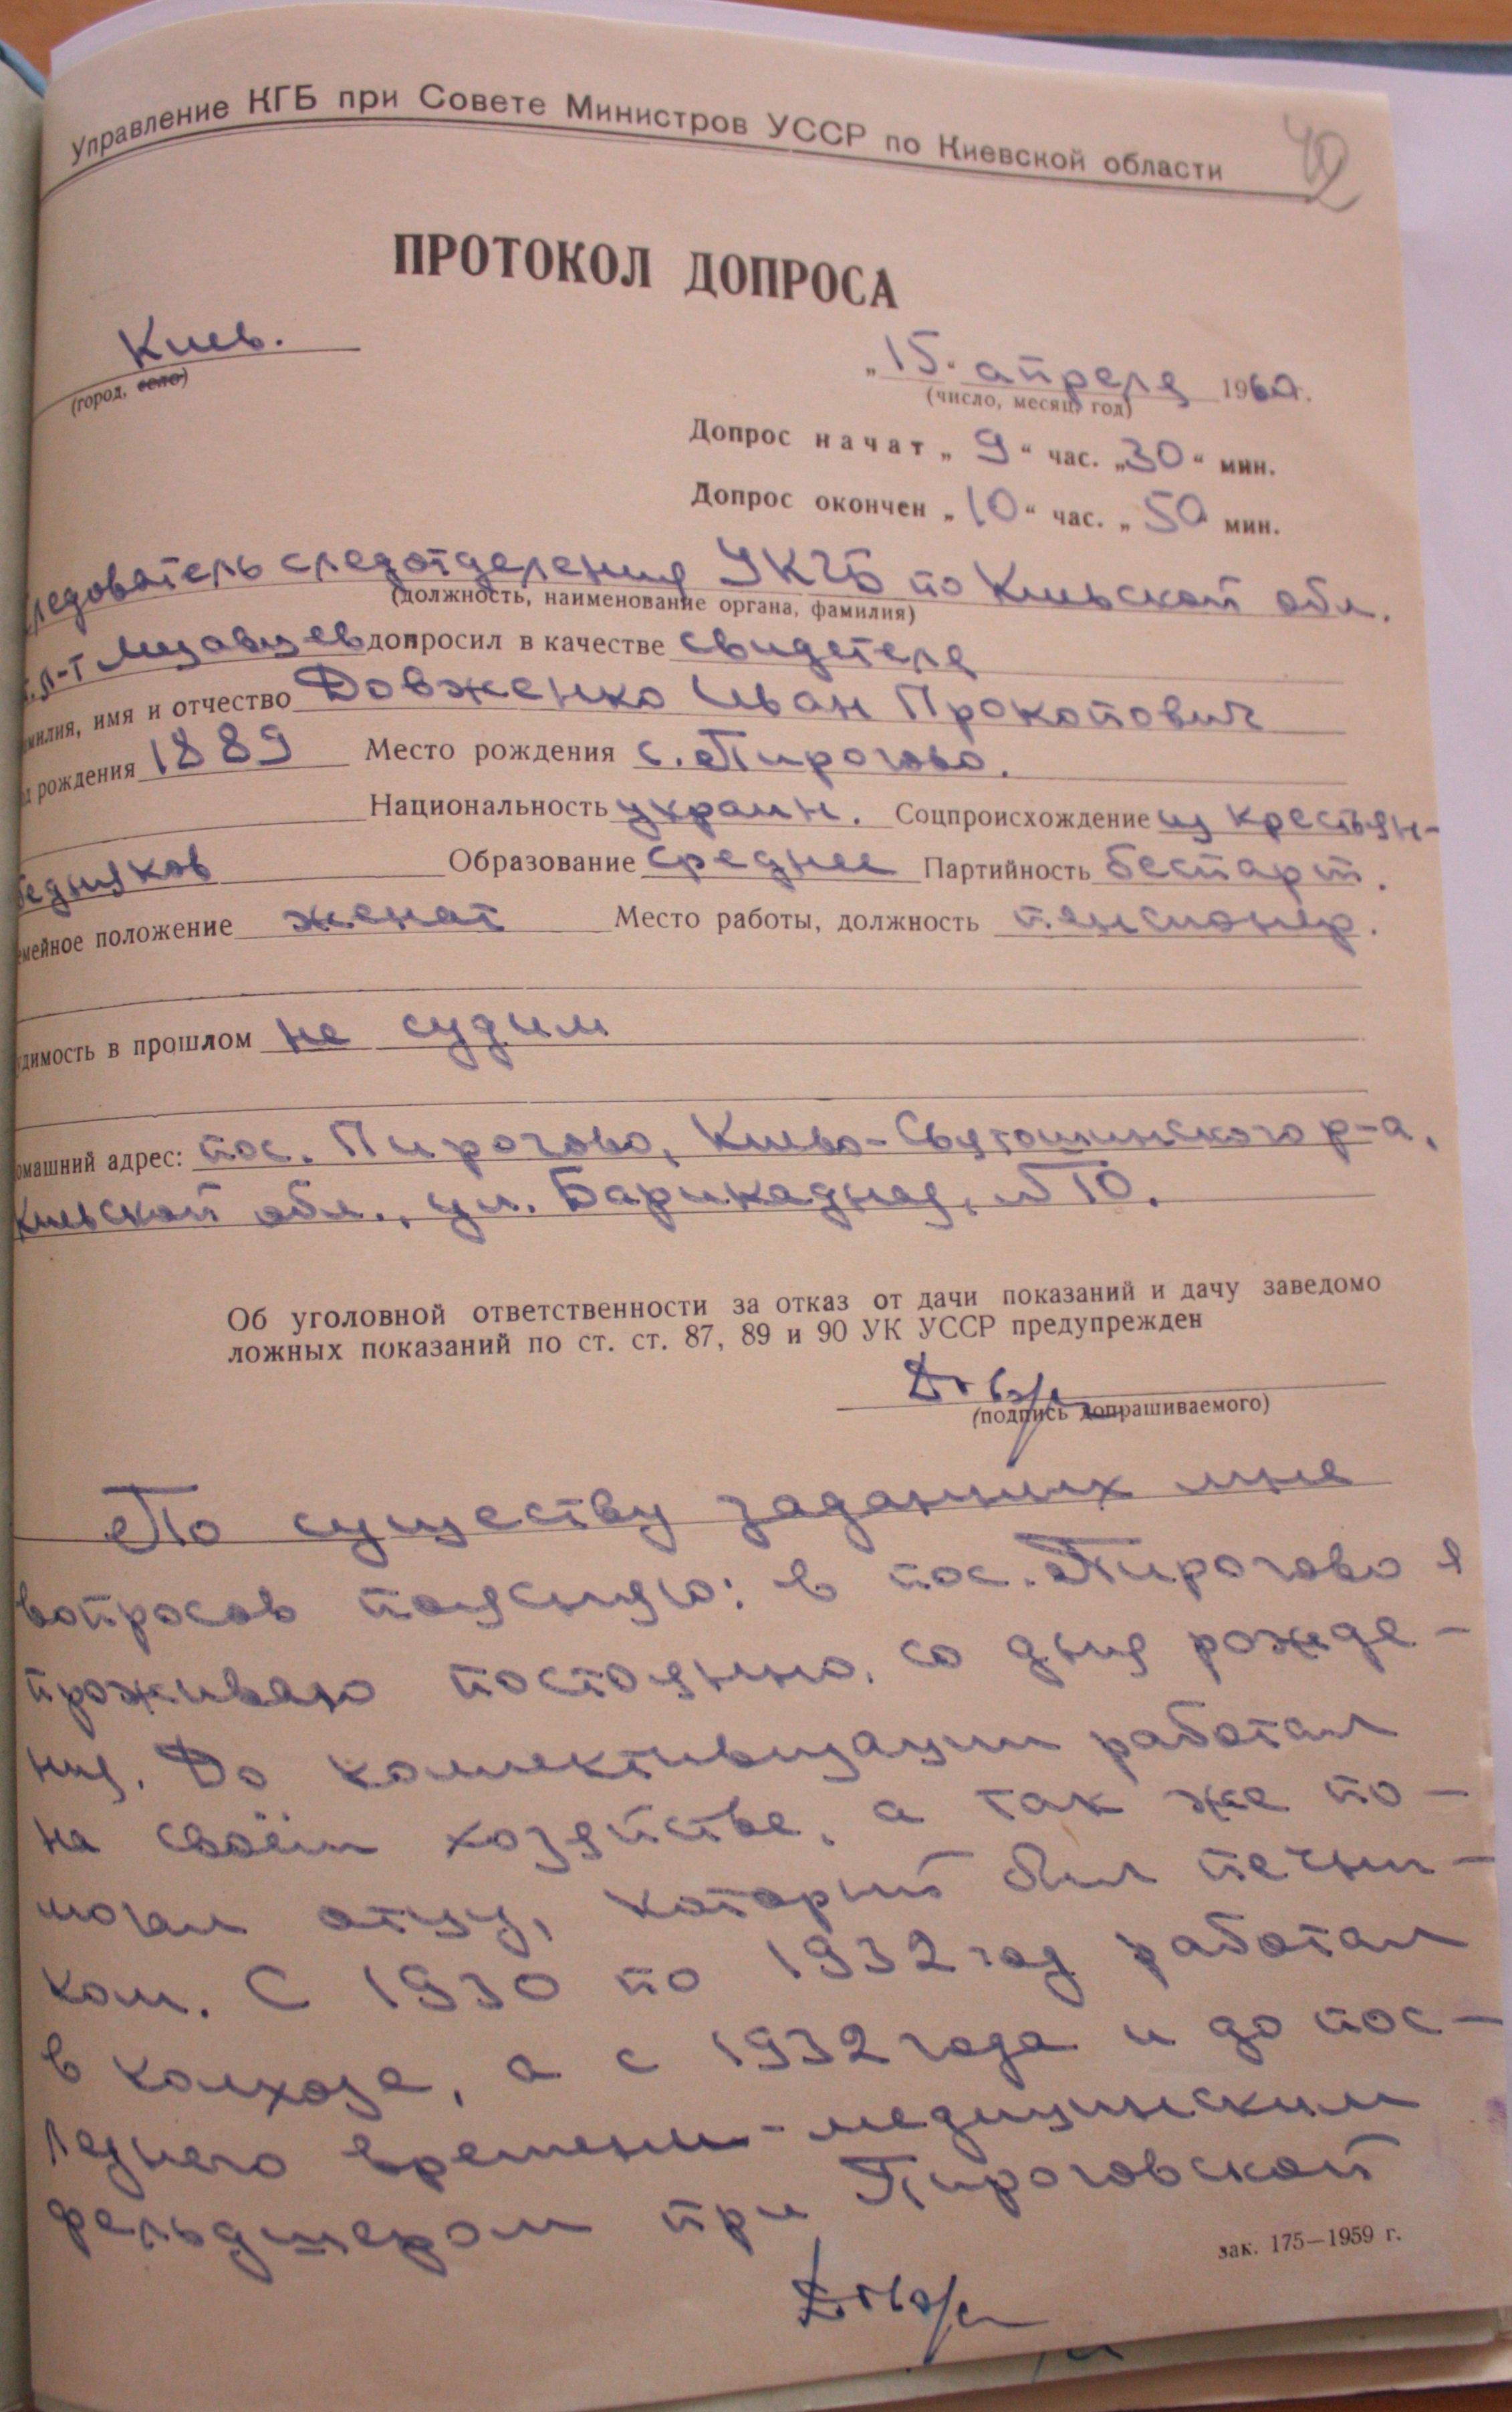 Управление КГБ при Совете Министров УССР по Киевской области
42
ПРОТОКОЛ ДОПРОСА
Киев.
(город, село)
„15. апреля 1960г.
(число, месяц, год)
Допрос начат „ 9 “ час. „30“ мин.
Допрос окончен „10“ час. „ 50 мин.
следователь следотделения УКГБ по Киевской обл.
(должность, наименование органа, фамилия)
л-т допросил в качестве свидетеля
милия, имя и отчество Довженко Иван Прокопович
рождения 1889 Место рождения с. Пирогово.
Национальность украин. Соцпроисхождение из крестьян-
бедняков Образование среднее Партийность беспарт.
мейное положение женат Место работы, должность пенсионер.
димость в прошлом не судим
омашний адрес: пос. Пирогово, Киево-Святошинского р-а,
Киевской обл., ул. Барикадная, №10.
Об уголовной ответственности за отказ от дачи показаний и дачу заведомо
ложных показаний по ст. ст. 87, 89 и 90 УК УССР предупрежден
(подпись допрашиваемого)
По существу заданных мне
вопросов поясняю: в пос. Пирогово я
проживаю постоянно, со дня рожде-
ния. До коллективизации работал
на своём хозяйстве, а так же по-
могал отцу, который был печни-
ком. С 1930 по 1932 год работал
в колхозе, а с 1932 года и до пос-
леднего времени - медицинским
фельдшером при Пироговской
зак. 175—1959 г.